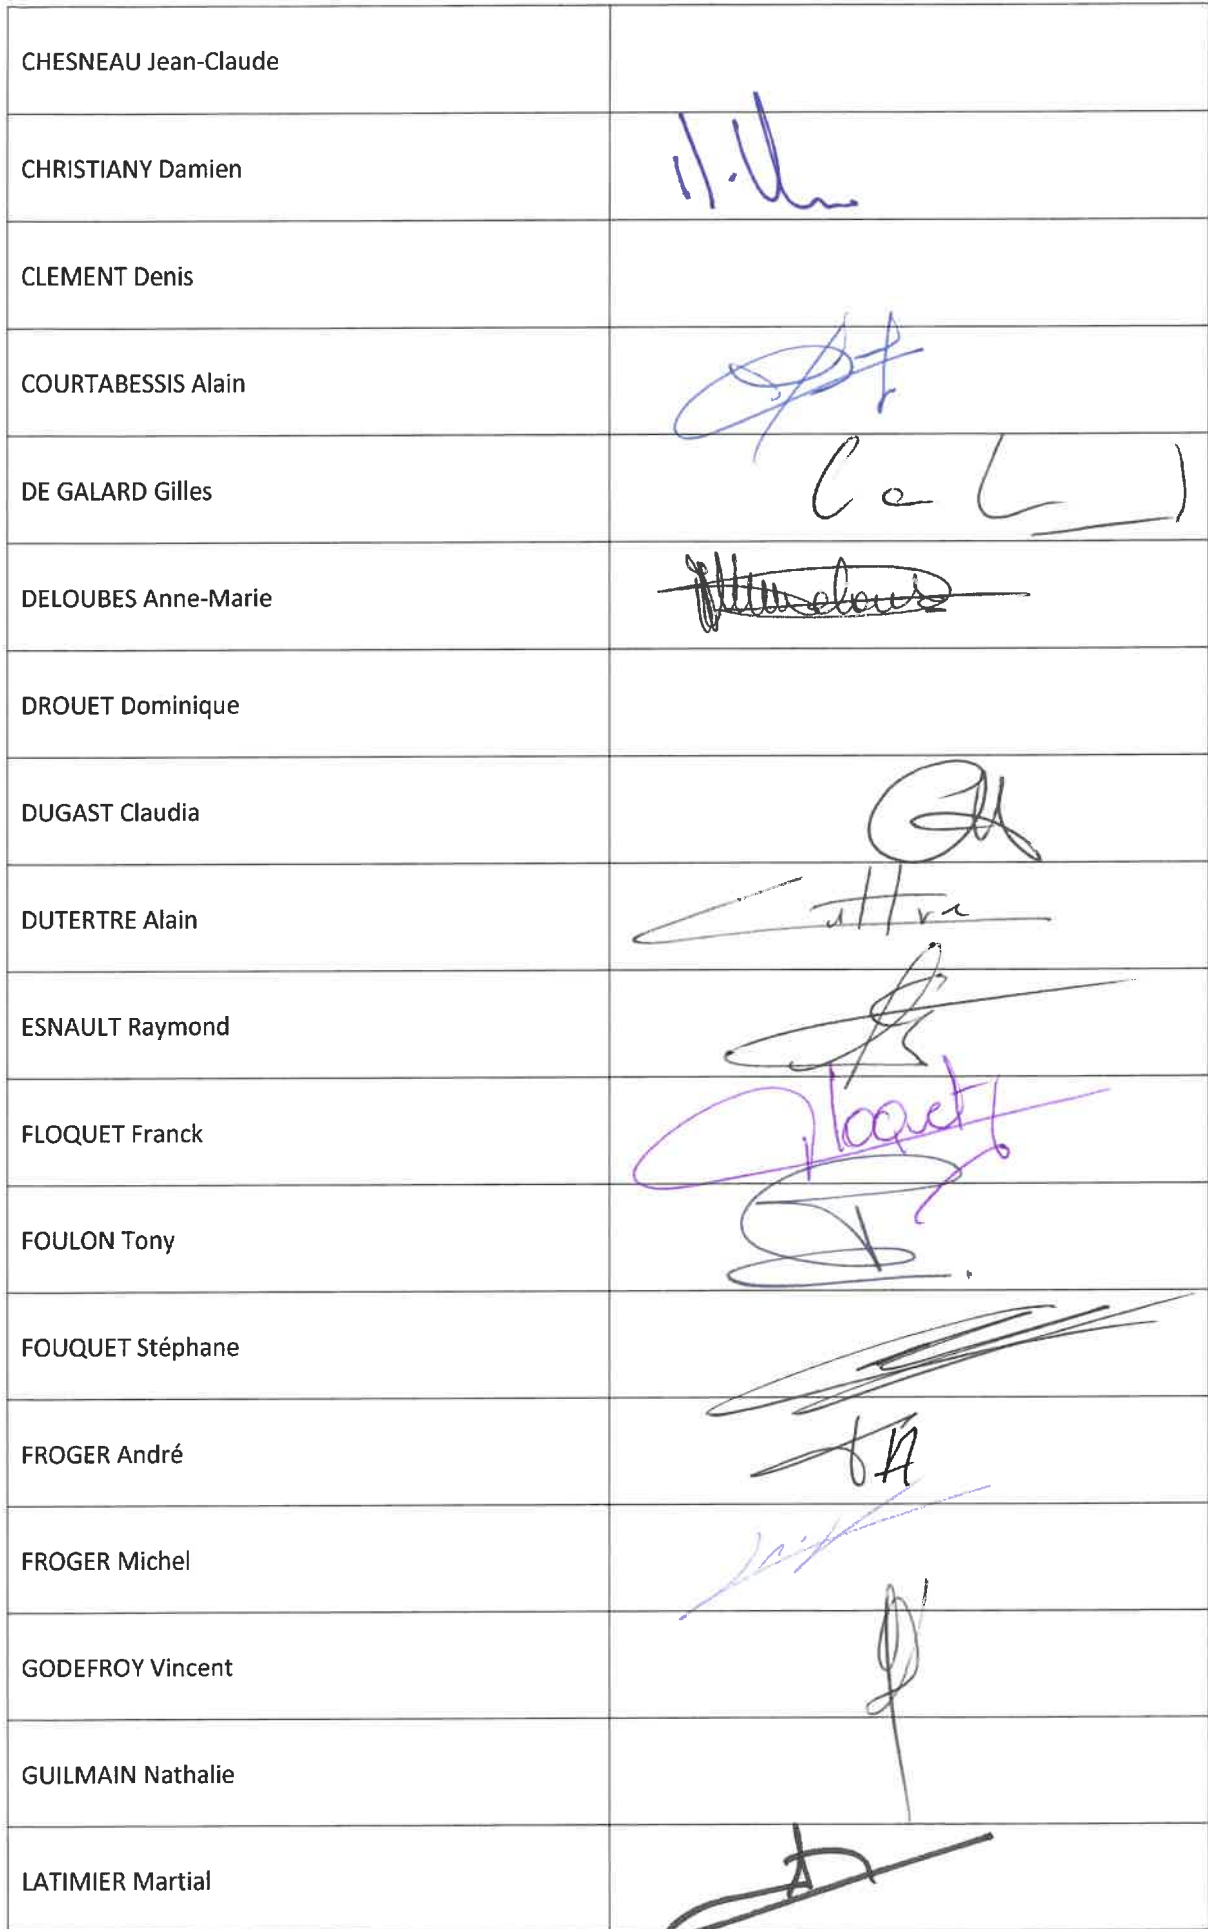 CHESNEAU Jean-Claude
CHRISTIANY Damien
CLEMENT Denis
COURTABESSIS Alain
DE GALARD Gilles
DELOUBES Anne-Marie
DROUET Dominique
DUGAST Claudia
DUTERTRE Alain
ESNAULT Raymond
FLOQUET Franck Floquet
FOULON Tony
FOUQUET Stéphane
FROGER André
FROGER Michel
GODEFROY Vincent
GUILMAIN Nathalie
LATIMIER Martial